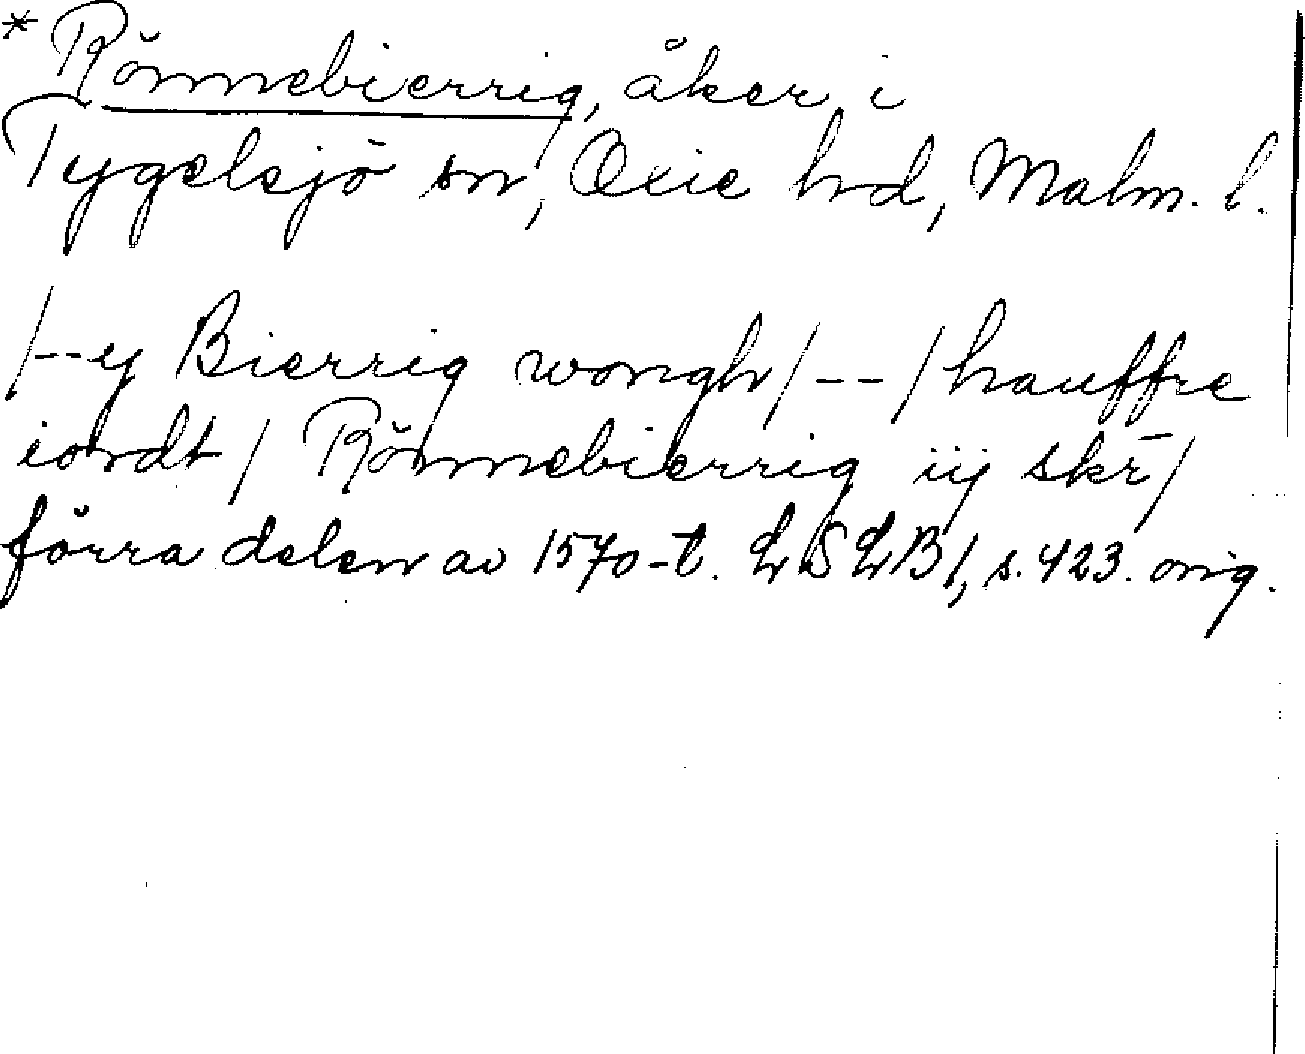 * Rönnebierrig, åker i
Tygelsjö sn, Oxie hd, Malm. l.
/--y Bierrig wongh/--/hauffre
iordt/ Rönnebierrig iij skr̄/
förra delen av 1570-t. LSLB1, s. 423. orig.